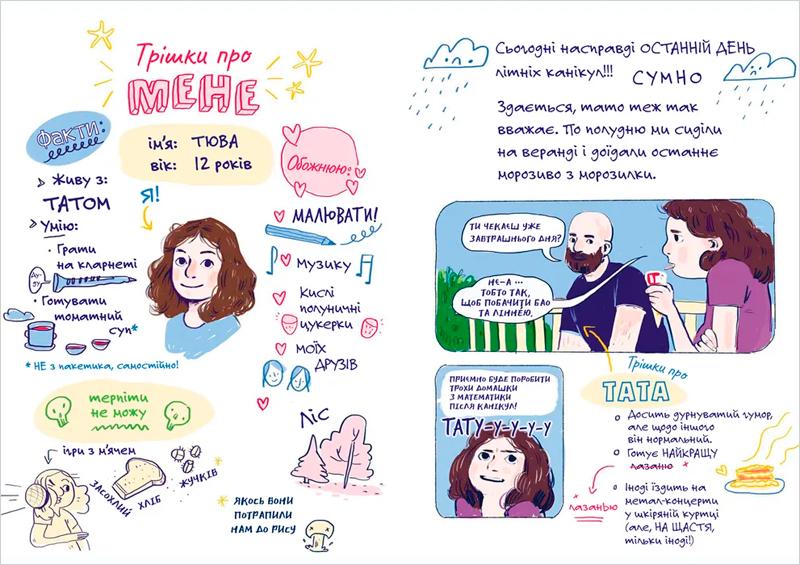 Трішки про
МЕНЕ
Факти:
ім'я: ТЮВА
вік: 12 років
Живу з:
ТАТОМ
Умію:
· Грати
на кларнеті
Ду-
ду
· Готувати
томатний
суп*
* НЕ з пакетика, самостійно!
Я!
Обожнюю:
МАЛЮВАТИ!
музику
кислі
полуничні
цукерки
моїх
ДРУЗІВ
ЛІС
терпіти
не можу
ігри з м'ячем
ЗАСОХЛИЙ ХЛІБ
ЖУЧКІВ
* ЯКОСЬ ВОНИ
ПОТРАПИЛИ
НАМ ДО РИСУ
Сьогодні насправді ОСТАННІЙ ДЕНЬ
літніх канікул!!! СУМНО
Здається, тато теж так
вважає. По полудню ми сиділи
на веранді і доїдали останнє
морозиво з морозилки.
ТИ ЧЕКАЄШ УЖЕ
ЗАВТРАШНЬОГО ДНЯ?
НЕ-А ...
ТОБТО ТАК,
ЩОБ ПОБАЧИТИ БАО
ТА ЛІННЕЮ,
ПРИЄМНО БУДЕ ПОРОБИТИ
ТРОХИ ДОМАШКИ
З МАТЕМАТИКИ
ПІСЛЯ КАНІКУЛ!
ТАТУ-У-У-У-У
Трішки про
ТАТА
Досить дурнуватий гумор,
але щодо іншого
він нормальний.
Готує НАЙКРАЩУ
лазаню
лазанью
Іноді їздить на
метал-концерти
у шкіряній куртці
(але, НА ЩАСТЯ,
тільки іноді!)